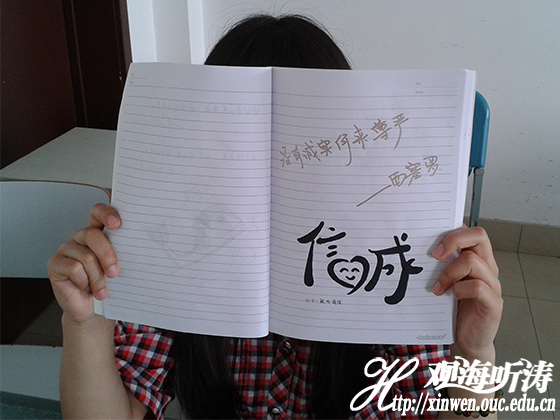 没有诚实何来尊严
——西塞罗
信诚
观海听涛
http://xinwen.ouc.edu.cn